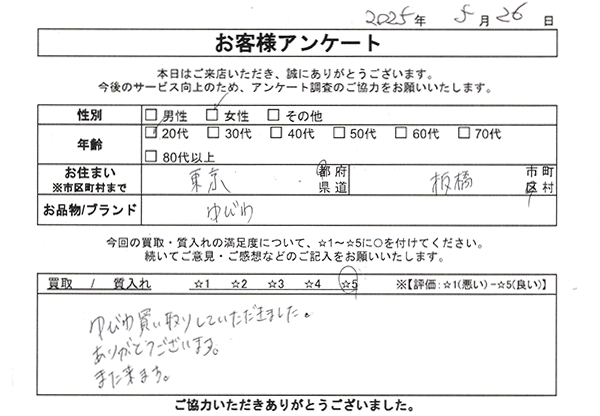 2025年 5月 26日
お客様アンケート
本日はご来店いただき、誠にありがとうございます。
今後のサービス向上のため、アンケート調査のご協力をお願いいたします。
性別 □ 男性 □ 女性 □ その他
年齢 □ 20代 □ 30代 □ 40代 □ 50代 □ 60代 □ 70代
□ 80代以上
お住まい ※市区町村まで 東京 都府県道 板橋 市町区村
お品物/ブランド ゆびわ
今回の買取・質入れの満足度について、☆1～☆5に○を付けてください。
続いてご意見・ご感想などのご記入をお願いいたします。
買取 / 質入れ ☆1 ☆2 ☆3 ☆4 ☆5 ※【評価:☆1(悪い)-☆5(良い)】
ゆびわ買い取りしていただきました。
ありがとうございます。
また来ます。
ご協力いただきありがとうございました。